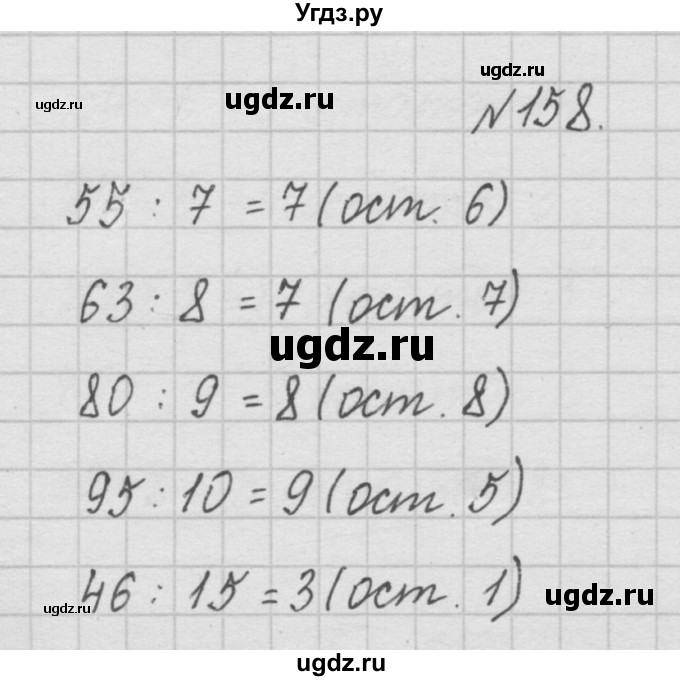 Угдз.ру
ugdz.ru
ugdz.ru
ugdz.ru
№158.
55 : 7 = 7 (ост. 6)
63 : 8 = 7 (ост. 7)
ugdz.ru
80 : 9 = 8 (ост. 8)
95 : 10 = 9 (ост. 5)
46 : 15 = 3 (ост. 1)
ugdz.ru
ugdz.ru
ugdz.ru